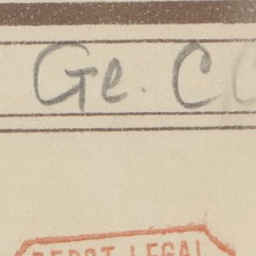 Ge. C
DEPOT LEGAL